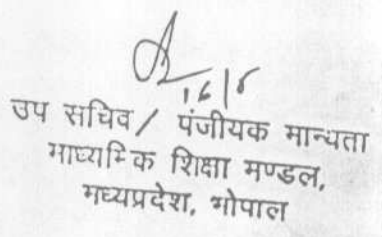 16/8
उप सचिव / पंजीयक मान्यता
माध्यमिक शिक्षा मण्डल,
मध्यप्रदेश, भोपाल